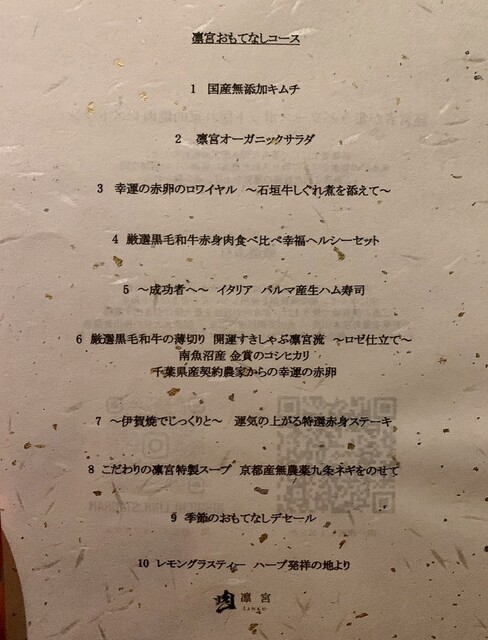 凛宮おもてなしコース
1 国産無添加キムチ
2 凛宮オーガニックサラダ
3 幸運の赤卵のロワイヤル ～石垣牛しぐれ煮を添えて～
4 厳選黒毛和牛赤身肉食べ比べ幸福ヘルシーセット
5 ～成功者へ～ イタリア パルマ産生ハム寿司
6 厳選黒毛和牛の薄切り 開運すきしゃぶ凛宮流 ～ロゼ仕立て～
南魚沼産 金賞のコシヒカリ
千葉県産契約農家からの幸運の赤卵
7 ～伊賀焼でじっくりと～ 運気の上がる特選赤身ステーキ
8 こだわりの凛宮特製スープ 京都産無農薬九条ネギをのせて
9 季節のおもてなしデセール
10 レモングラスティー ハーブ発祥の地より
肉 凛宮